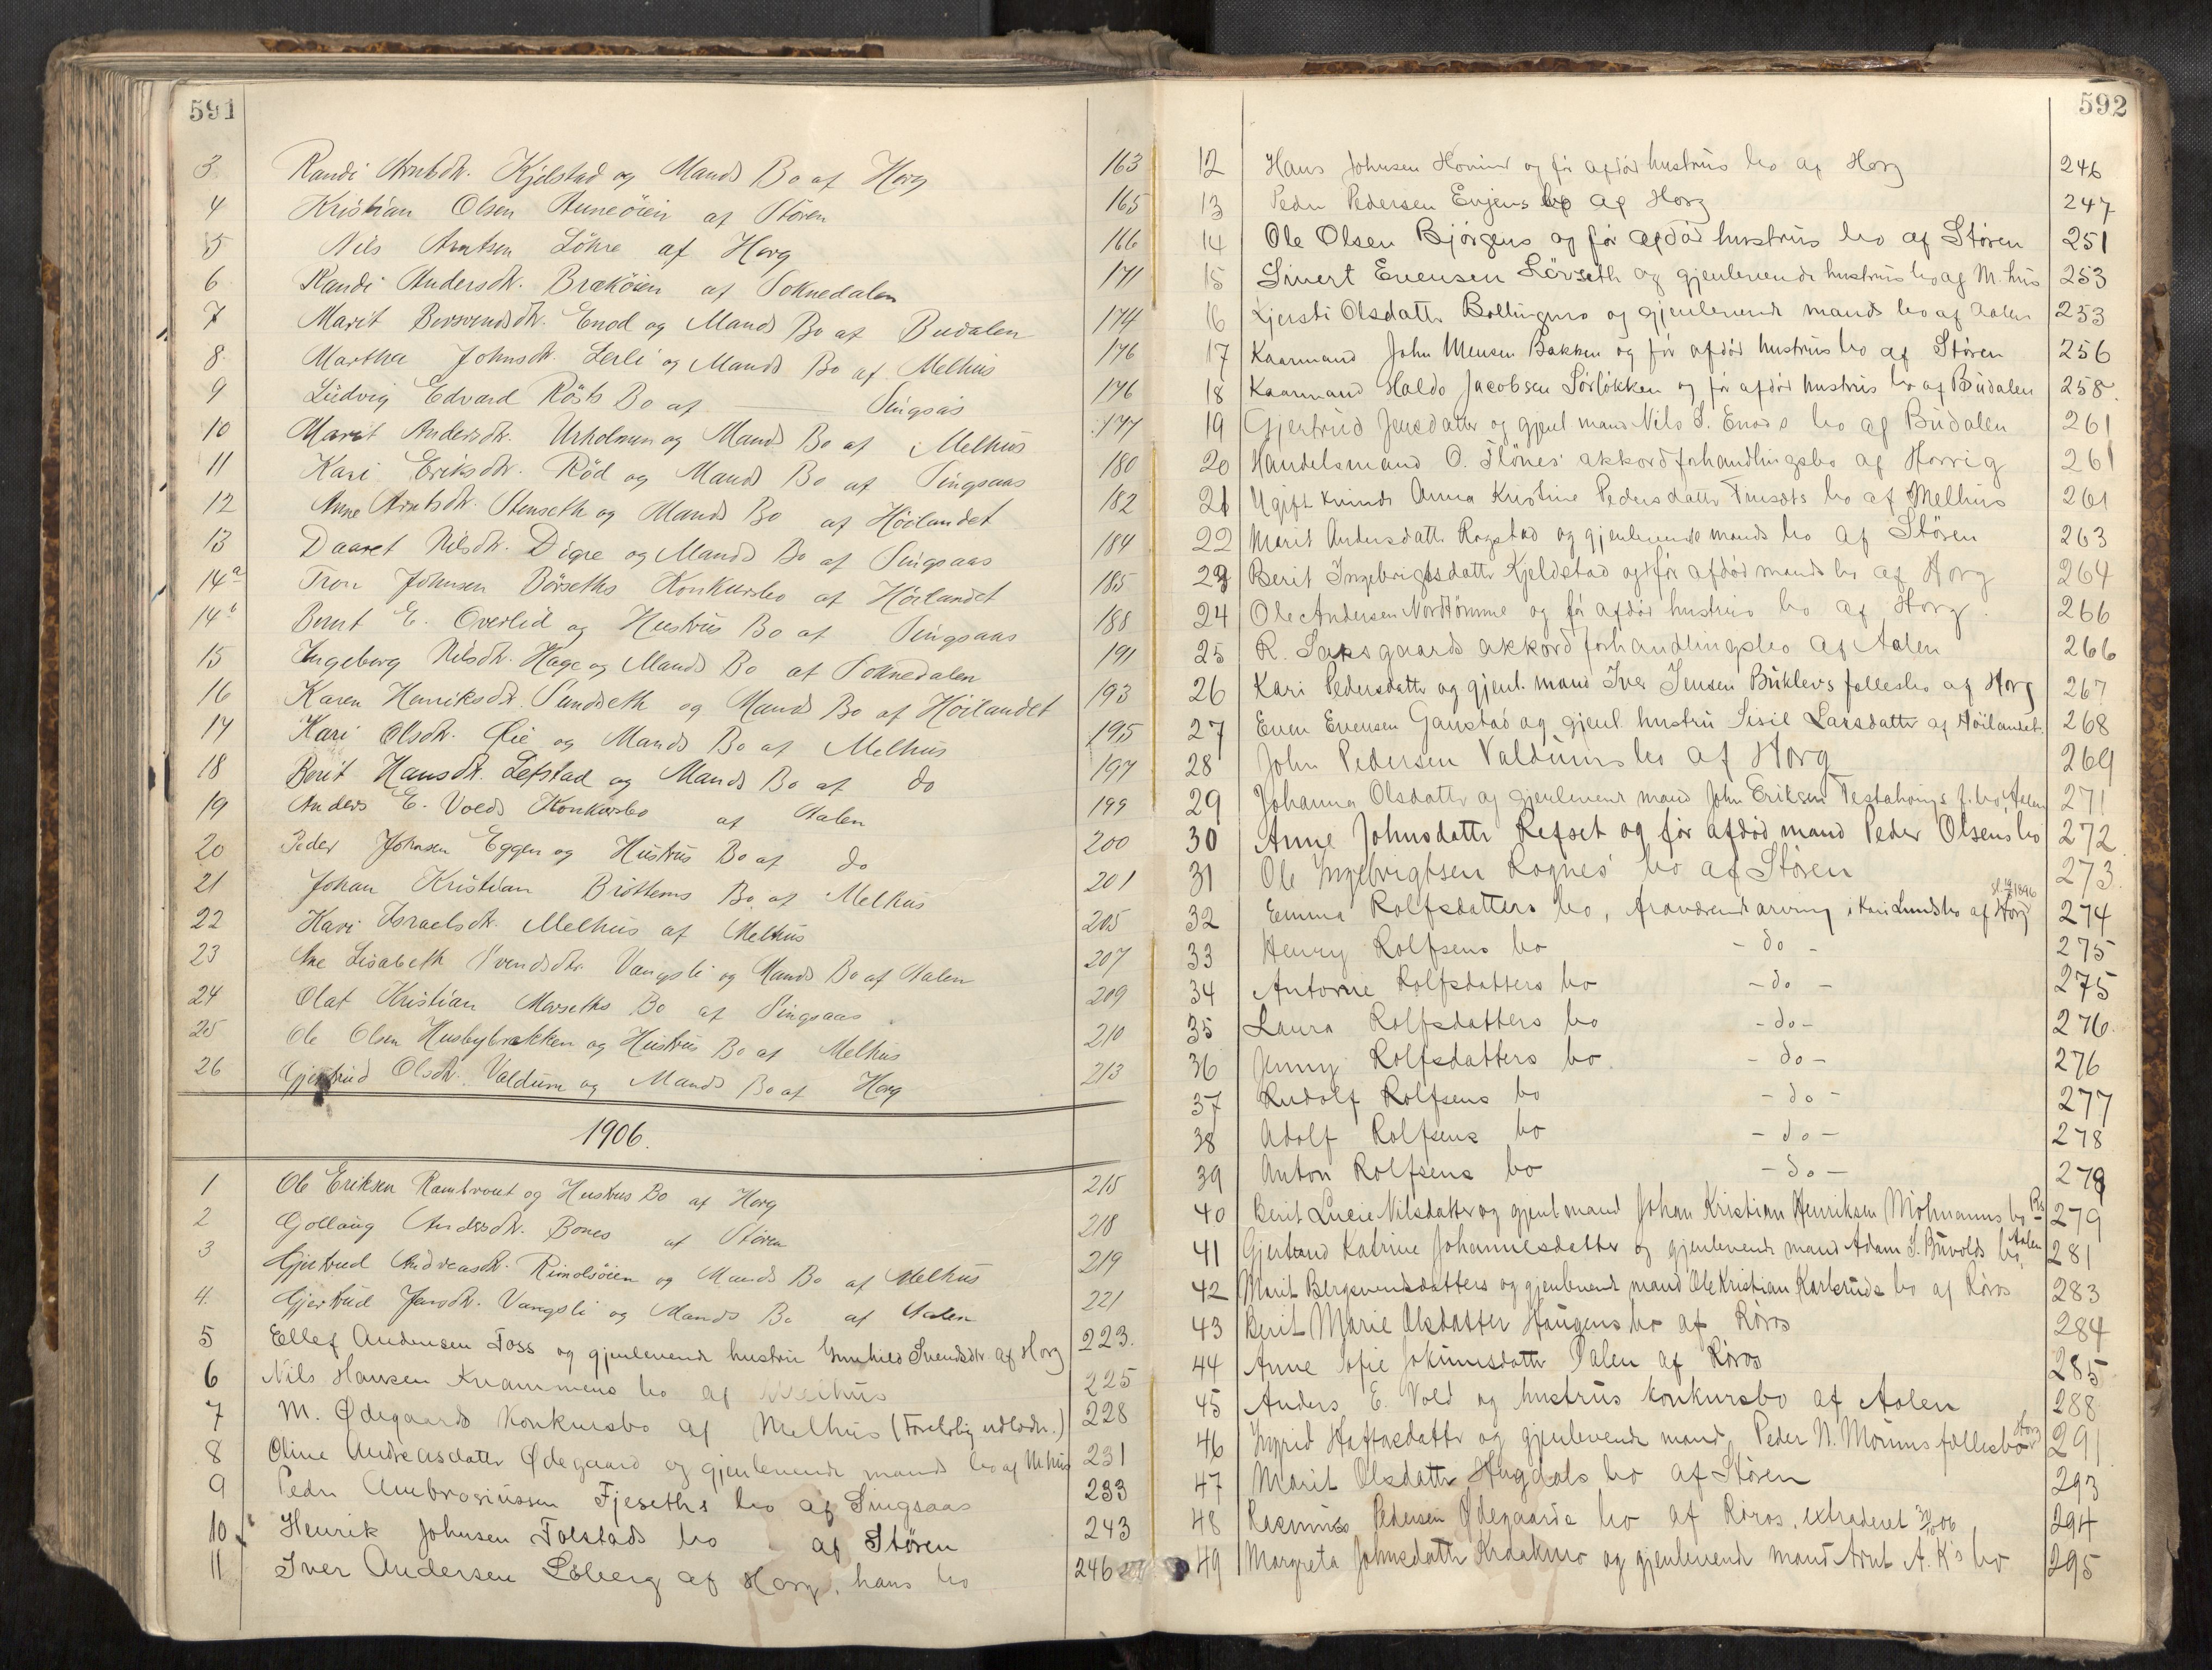 591
3 Randi Arntsdtr. Kjelstad og Mands Bo af Horg 163
4 Kristian Olsen Auneöien af Stören 165
5 Nils Arntsen Löhre af Horg 166
6 Randi Andersdtr. Bræköien af Soknedalen 171
7 Marit Bersvendsdtr. Enod og Mands Bo af Budalen 174
8 Martha Johnsdtr. Lerli og Mands Bo af Melhus 176
9 Ludvig Edvard Rösts Bo af Singsås 176
10 Marit Andersdtr. Urholmen og Mands Bo af Melhus 177
11 Kari Eriksdtr. Röd og Mands Bo af Singsaas 180
12 Ane Arntsdtr. Stenseth og Mands Bo af Höilandet 182
13 Daaret Nilsdtr. Digre og Mands Bo af Singsaas 184
14a Tron Johnsen Börseths Konkursbo af Höilandet 185
14b Bernt E. Overlid og Hustrus Bo af Singsaas 188
15 Ingeborg Nilsdtr. Hage og Mands Bo af Soknedalen 191
16 Karen Henriksdtr. Sundseth og Mands Bo af Höilandet 193
17 Kari Olsdtr. Øie og Mands Bo af Melhus 195
18 Berit Hansdtr. Lefstad og Mands Bo af do 197
19 Anders E. Volds Konkursbo af Aalen 199
20 Peder Johnsen Eggen og Hustrus Bo af do 200
21 Johan Kristian Bröttems Bo af Melhus 201
22 Kari Israelsdtr. Melhus af Melhus 205
23 Ane Lisabeth Svendsdtr. Vangsli og Mands Bo af Aalen 207
24 Olaf Kristian Morseths Bo af Singsaas 209
25 Ole Olsen Husbybrækken og Hustrus Bo af Melhus 210
26 Gjertrud Olsdtr. Valdum og Mands Bo af Horg 213
1906.
1 Ole Eriksen Rambraut og Hustrus Bo af Horg 215
2 Gollaug Andersdtr. Bones af Stören 218
3 Gjertrud Andreasdtr. Rimolsöien og Mands Bo af Melhus 219
4. Gjertrud Jansdtr. Vangsli og Mands Bo af Aalen 221
5 Ellef Andersen Foss og gjenlevende hustru Gunhild Svendsdtr. af Horg 223.
6 Nils Hansen Kvammens bo af Melhus 225
7 M. Ødegaards Konkursbo af Melhus (Foreløbig udlodn.) 228
8 Oline Andreasdatter Ødegaard og gjenlevende mands bo af M.hus 231
9 Peder Ambrosiussen Fjeseths bo af Singsaas 233
10 Henrik Johnsen Folstads bo af Stören 243
11 Iver Andersen Löberg af Horg, hans bo 246
592
12 Hans Johnsen og før afdød hustrus bo af Horg 246
13 Peder Pedersen Evjens bo af Horg 247
14 Ole Olsen Bjørgens og før afdød hustrus bo af Støren 251
15 Sivert Evensen Lövseth og gjenlevende hustrus bo af M.hus 253
16 Kjersti Olsdatter Bollingmo og gjenlevende mands bo af Aalen 253
17 Kaarmand John Mensen Bakken og før afdød hustrus bo af Støren 256
18 Kaarmand Haldo Jacobsen Sörlökken og før afdød hustrus bo af Budalen 258.
19 Gjertrud Jensdatter og gjenl. mand Nils S. Enods bo af Budalen 261
20 Handelsmand O. Flönes' akkordforhandlingsbo af Horrig 261
21 Ugift kvinde Anna Kristine Pedersdatter bo af Melhus 261
22 Marit Andersdatter Rogstad og gjenlevende mands bo af Stören 263
23 Berit Ingebrigtsdatter Kjeldstad og før afdød mands bo af Horg 264
24 Ole Andersen Nordtömme og før afdød hustrus bo af Horg. 266
25 R. Saksgaards akkordforhandlingsbo af Aalen 266
26 Kari Pedersdatter og gjenl. mand Iver Jensen Buklevs fællesbo af Horg 267
27 Even Evensen Ganstad og gjenl. hustru Sisil Larsdatter af Höilandet. 268
28 John Pedersen Valdums bo af Horg 269
29 Johanna Olsdatter og gjenlevende mand John Eriksen f. bo, Aalen 271
30 Anne Johnsdatter Refset og før afdød mand Peder Olsens bo 272
31 Ole Ingebrigtsen Rognes' bo af Stören 273
32 Emma Rolfsdatters bo, fraværende arving i Kari Lunds bo af Horg 274
33 Henry Rolfsens bo - do - 275
34 Antonie Rolfsdatters bo - do - 275
35 Laura Rolfsdatters bo - do - 276.
36 Jenny Rolfsdatters bo - do - 276
37 Rudolf Rolfsens bo - do - 277
38 Adolf Rolfsens bo - do - 278
39 Anton Rolfsens bo - do - 279
40 Berit Lucie Nilsdatter og gjenl. mand Johan Kristian Henriksen Möhmanns bo Rs 279
41 Gjertrud Katrine Johannesdatter og gjenlevende mand Adam J. Buvolds bo, Aalen 281
42 Marit Bergsvendsdatters og gjenlevende mand Ole Kristian Karlsruds bo af Röros 283
43 Berit Marie Olsdatter Haugens bo af Röros 284
44 Anne Sofie Jokumsdatter Dalen af Röros 285
45 Anders E. Vold og hustrus konkursbo af Aalen 288
46 Ingrid Haftorsdatter og gjenlevende mand Peder N. Moums fællesbo Horg 291
47 Marit Olsdatter Hugdals bo af Stören 293
48 Rasmus Pedersen Ødegaards bo af Röros, extraderet 30/10 06 294
49 Margreta Johnsdatter Kraakmo og gjenlevende mand Arnt A. K's bo 295